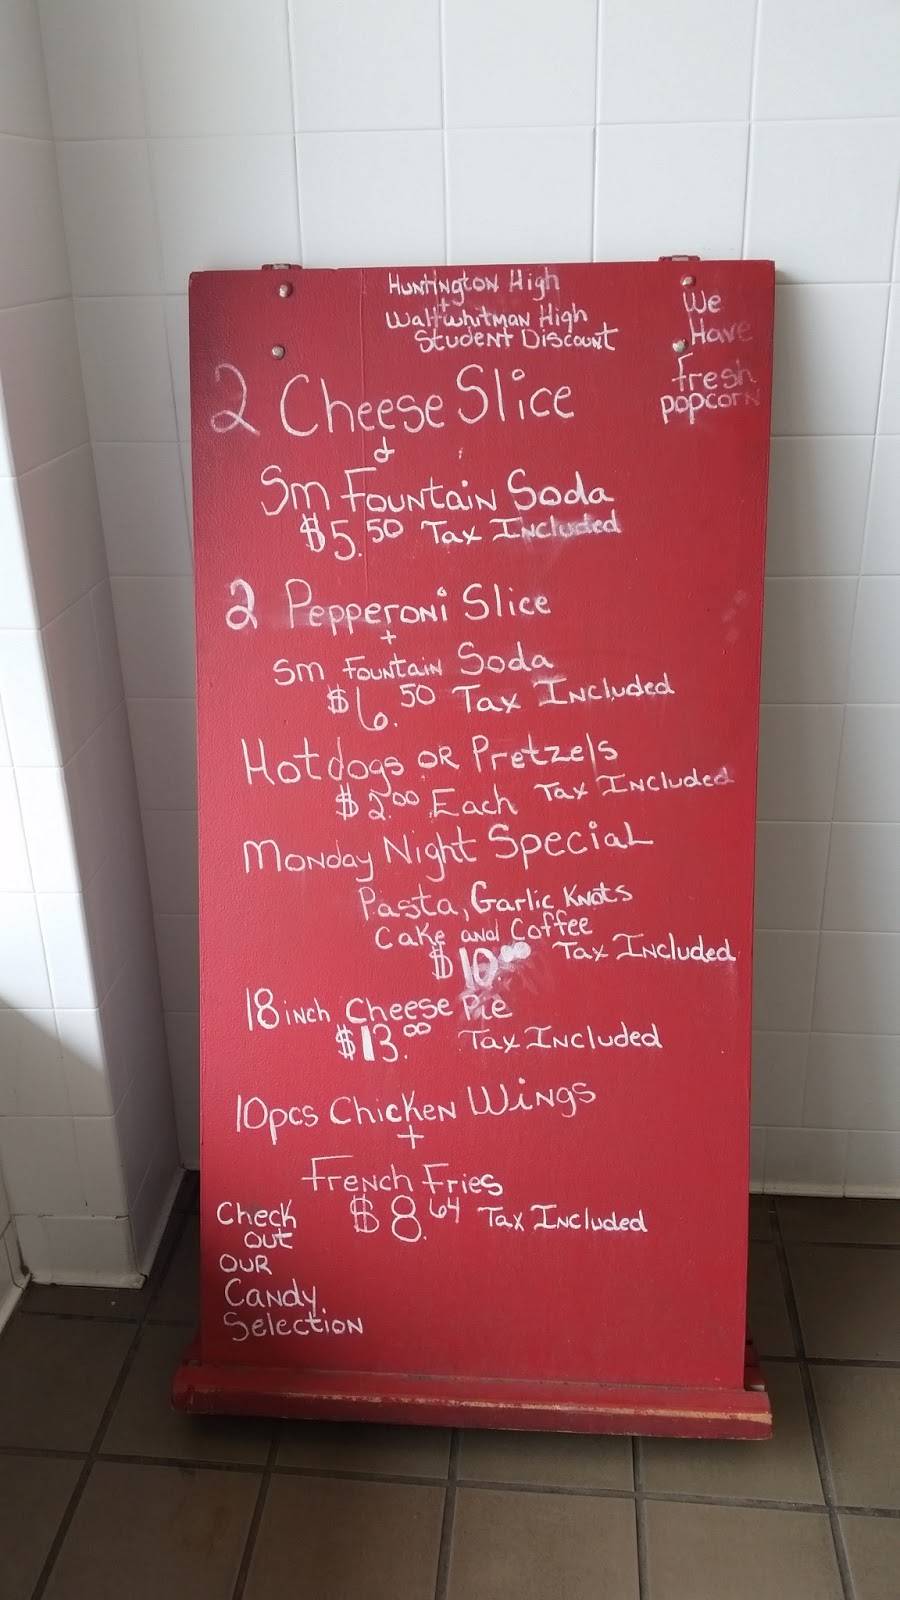 Huntington High
+
Walt Whitman High
Student Discount
We
Have
fresh
popcorn
2 Cheese Slice
&
Sm Fountain Soda
$5.50 Tax Included
2 Pepperoni Slice
+
Sm Fountain Soda
$6.50 Tax Included
Hotdogs or Pretzels
$2.00 Each Tax Included
Monday Night Special
Pasta, Garlic Knots
Cake and Coffee
$10.00 Tax Included
18 inch Cheese Pie
$13.00 Tax Included
10pcs Chicken Wings
+
French Fries
$8.64 Tax Included
Check
out
our
Candy
Selection